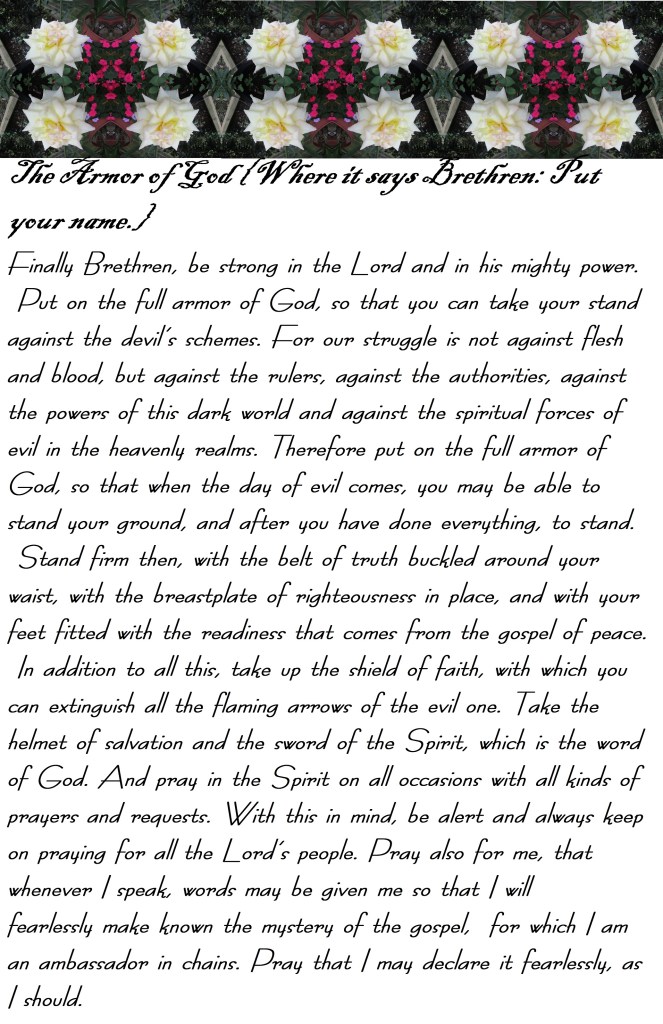 The Armor of God {Where it says Brethren: Put
your name.}
Finally Brethren, be strong in the Lord and in his mighty power.
Put on the full armor of God, so that you can take your stand
against the devil's schemes. For our struggle is not against flesh
and blood, but against the rulers, against the authorities, against
the powers of this dark world and against the spiritual forces of
evil in the heavenly realms. Therefore put on the full armor of
God, so that when the day of evil comes, you may be able to
stand your ground, and after you have done everything, to stand.
Stand firm then, with the belt of truth buckled around your
waist, with the breastplate of righteousness in place, and with your
feet fitted with the readiness that comes from the gospel of peace.
In addition to all this, take up the shield of faith, with which you
can extinguish all the flaming arrows of the evil one. Take the
helmet of salvation and the sword of the Spirit, which is the word
of God. And pray in the Spirit on all occasions with all kinds of
prayers and requests. With this in mind, be alert and always keep
on praying for all the Lord's people. Pray also for me, that
whenever I speak, words may be given me so that I will
fearlessly make known the mystery of the gospel, for which I am
an ambassador in chains. Pray that I may declare it fearlessly, as
I should.